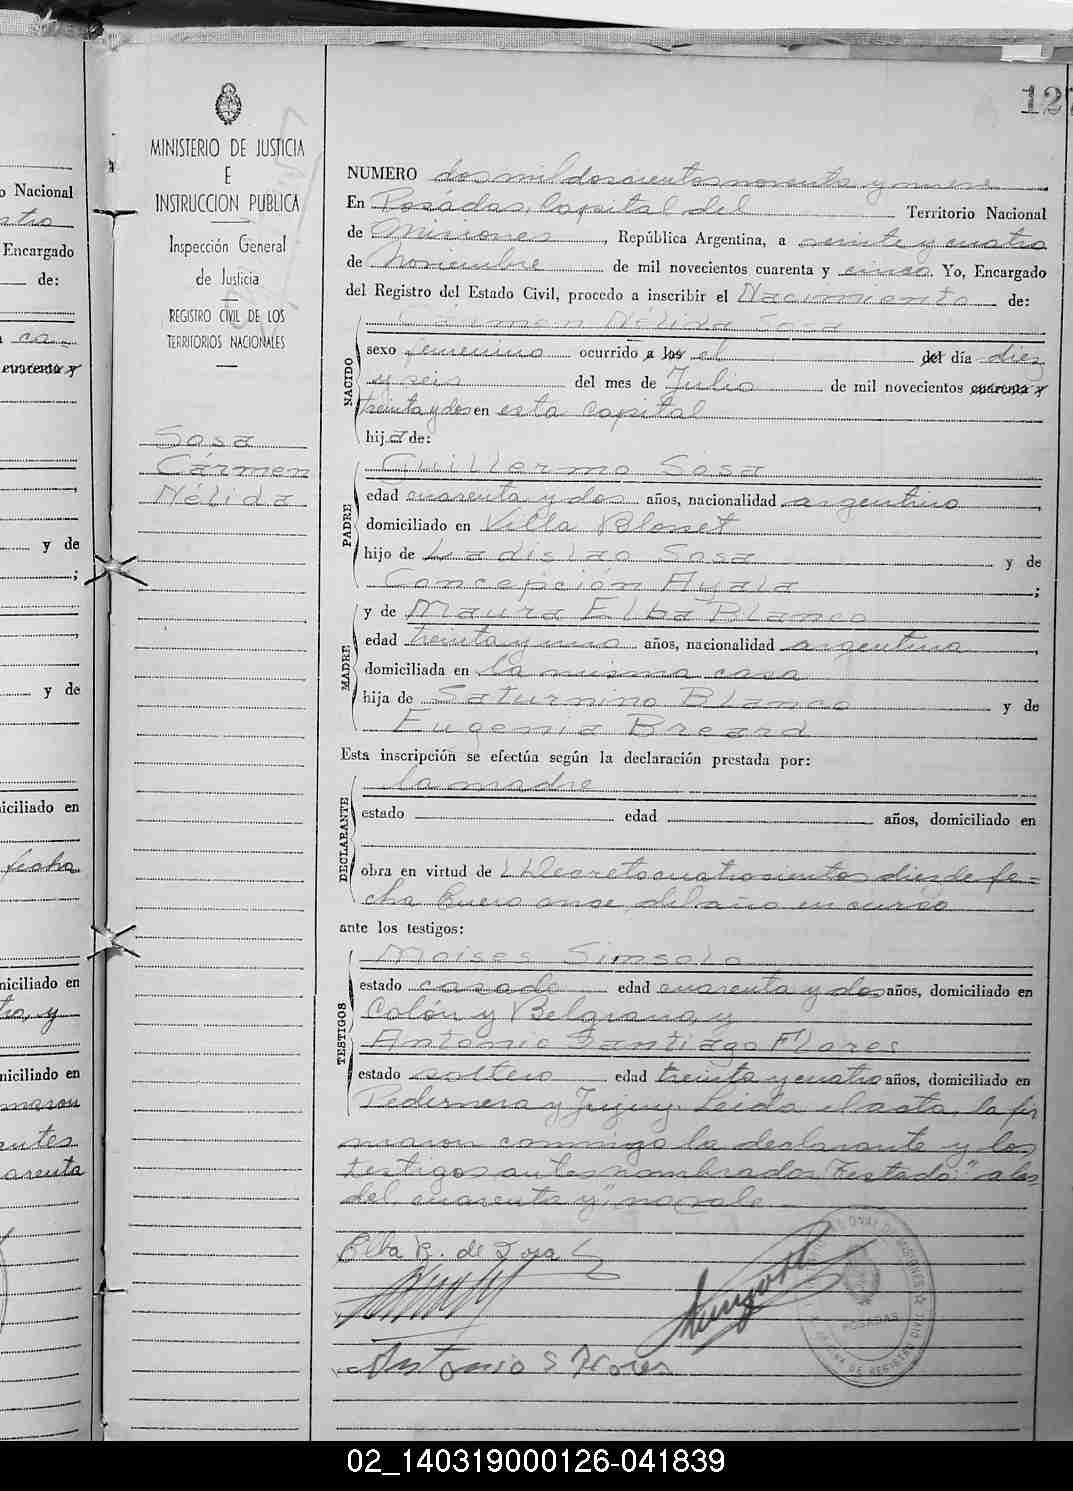 127
MINISTERIO DE JUSTICIA
E
INSTRUCCION PUBLICA
Inspección General
de Justicia
REGISTRO CIVIL DE LOS
TERRITORIOS NACIONALES
Sosa
Cármen
Nélida
o Nacional
Encargado
de:
y de
;
y de
iciliado en
fecha
niciliado en
niciliado en
maron
arenta
NUMERO dos mil doscientos noventa y nueve
En Posadas, Capital del Territorio Nacional
de Misiones, República Argentina, a veinte y cuatro
de Noviembre de mil novecientos cuarenta y cinco. Yo, Encargado
del Registro del Estado Civil, procedo a inscribir el Nacimiento de:
NACIDO
Cármen Nélida Sosa
sexo femenino ocurrido a los el del día diez
y seis del mes de Julio de mil novecientos cuarenta y
treinta y dos en esta Capital
hija de:
PADRE
Guillermo Sosa
edad cuarenta y dos años, nacionalidad argentino
domiciliado en Villa Blosset
hijo de Ladislao Sosa y de
Concepción Ayala ;
MADRE
y de Maura Elba Blanco
edad treinta y uno años, nacionalidad argentina
domiciliada en la misma casa
hija de Saturnino Blanco y de
Eugenia Breard
Esta inscripción se efectúa según la declaración prestada por:
DECLARANTE
la madre
estado edad años, domiciliado en
obra en virtud de Decreto cuatrocientos diez de fe-
cha Enero once del año en curso
ante los testigos:
TESTIGOS
Moises Simsolo
estado casado edad cuarenta y dos años, domiciliado en
Colón y Belgrano, y
Antonio Santiago Flores
estado soltero edad treinta y cuatro años, domiciliado en
Pedernera y Jujuy. Leida el acta, la fir
maron conmigo la declarante y los
testigos antes nombrados. Testado: "a los
del, cuarenta y", no vale
Elba B. de Sosa
Antonio S Flores
POSADAS
02_140319000126-041839